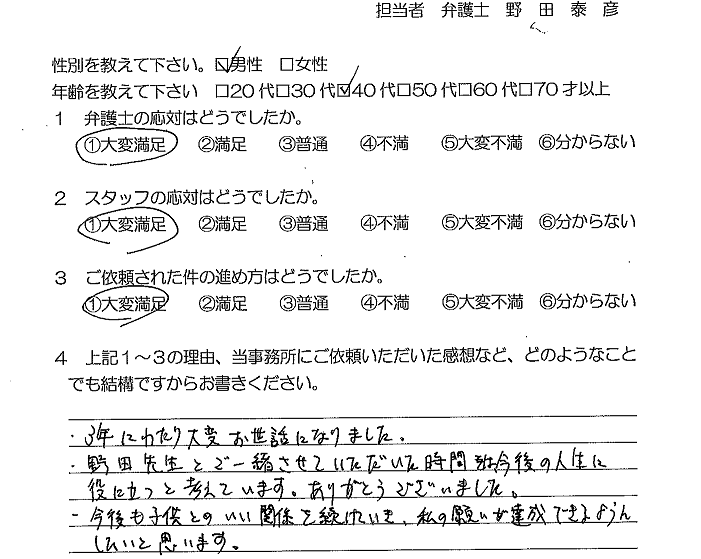 担当者 弁護士 野 田 泰 彦
性別を教えて下さい。☑男性 □女性
年齢を教えて下さい □20代□30代☑40代□50代□60代□70才以上
1 弁護士の応対はどうでしたか。
①大変満足 ②満足 ③普通 ④不満 ⑤大変不満 ⑥分からない
2 スタッフの応対はどうでしたか。
①大変満足 ②満足 ③普通 ④不満 ⑤大変不満 ⑥分からない
3 ご依頼された件の進め方はどうでしたか。
①大変満足 ②満足 ③普通 ④不満 ⑤大変不満 ⑥分からない
4 上記1～3の理由、当事務所にご依頼いただいた感想など、どのようなこと
でも結構ですからお書きください。
・3年にわたり大変お世話になりました。
・野田先生とご一緒させていただいた時間は今後の人生に
役に立つと考えています。ありがとうございました。
・今後も子供とのいい関係を続けていき、私の願いが達成できるように
したいと思います。